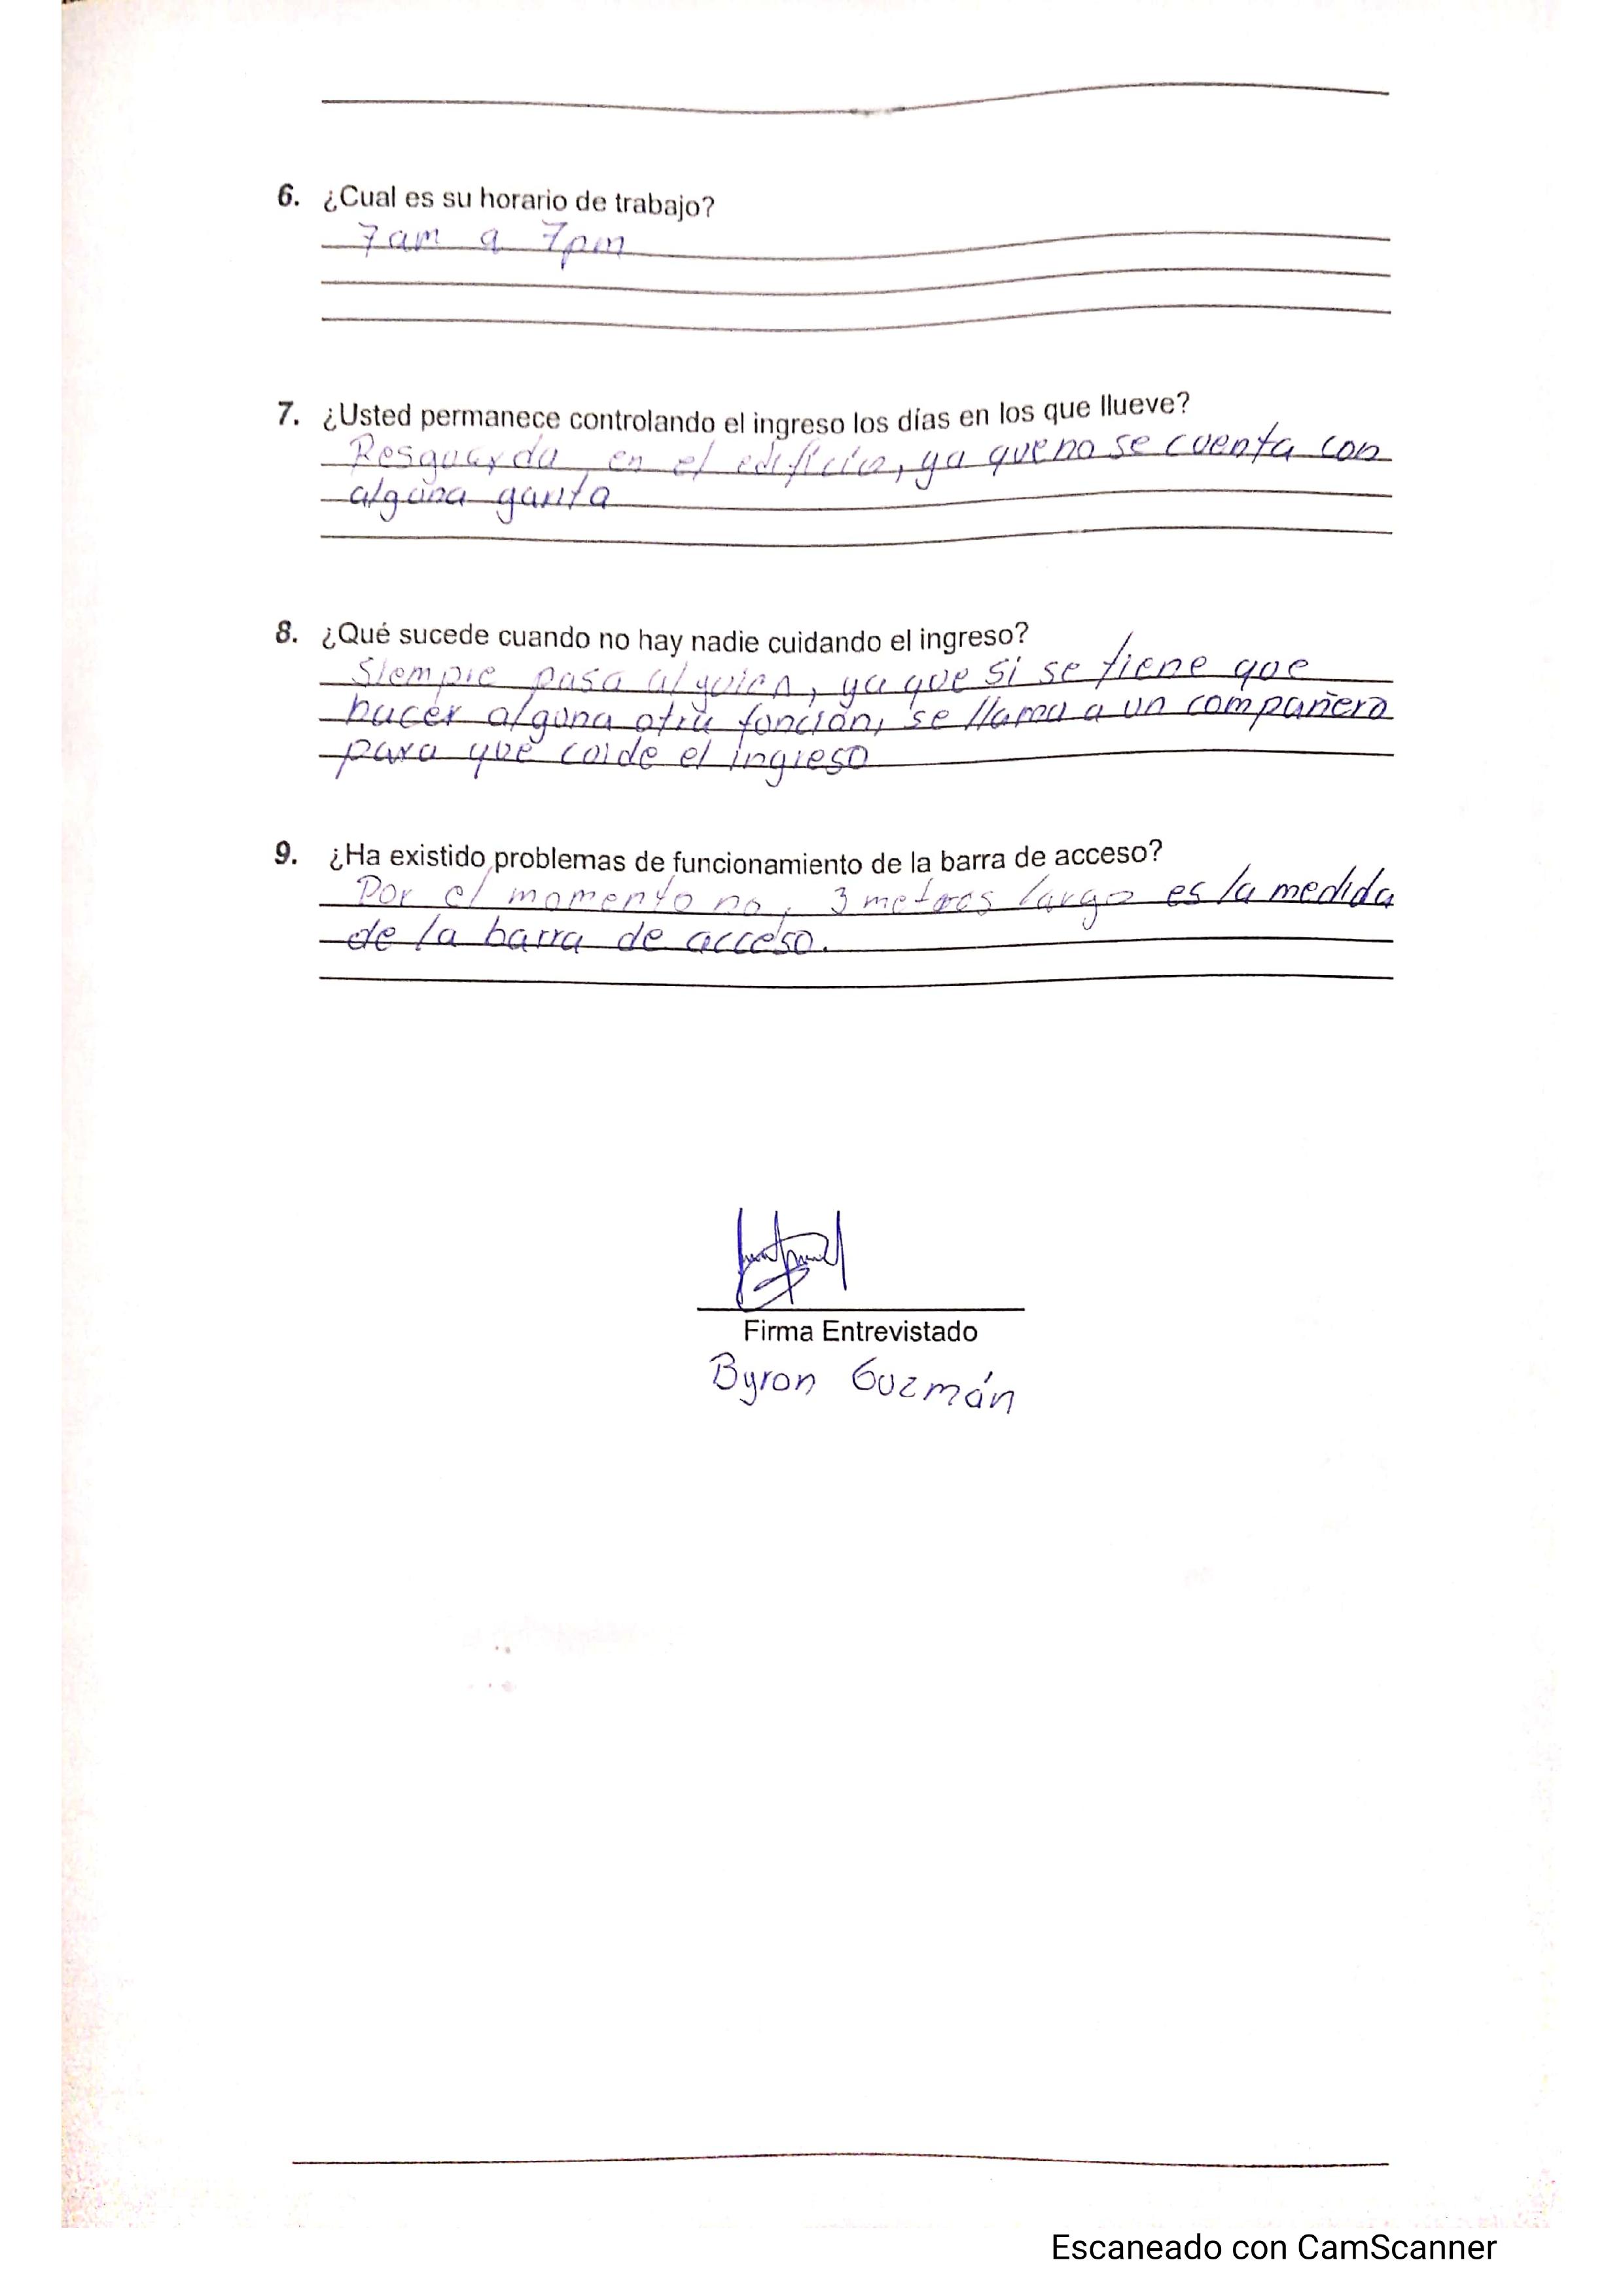 6. ¿Cual es su horario de trabajo?
7am a 7pm
7. ¿Usted permanece controlando el ingreso los días en los que llueve?
Resguarda en el edificio, ya que no se cuenta con
alguna garita
8. ¿Qué sucede cuando no hay nadie cuidando el ingreso?
Siempre pasa alguien, ya que si se tiene que
hacer alguna otra función, se llama a un compañero
para que cuide el ingreso
9. ¿Ha existido problemas de funcionamiento de la barra de acceso?
Por el momento no, 3 metros largo es la medida
de la barra de acceso.
Firma Entrevistado
Byron Guzmán
Escaneado con CamScanner